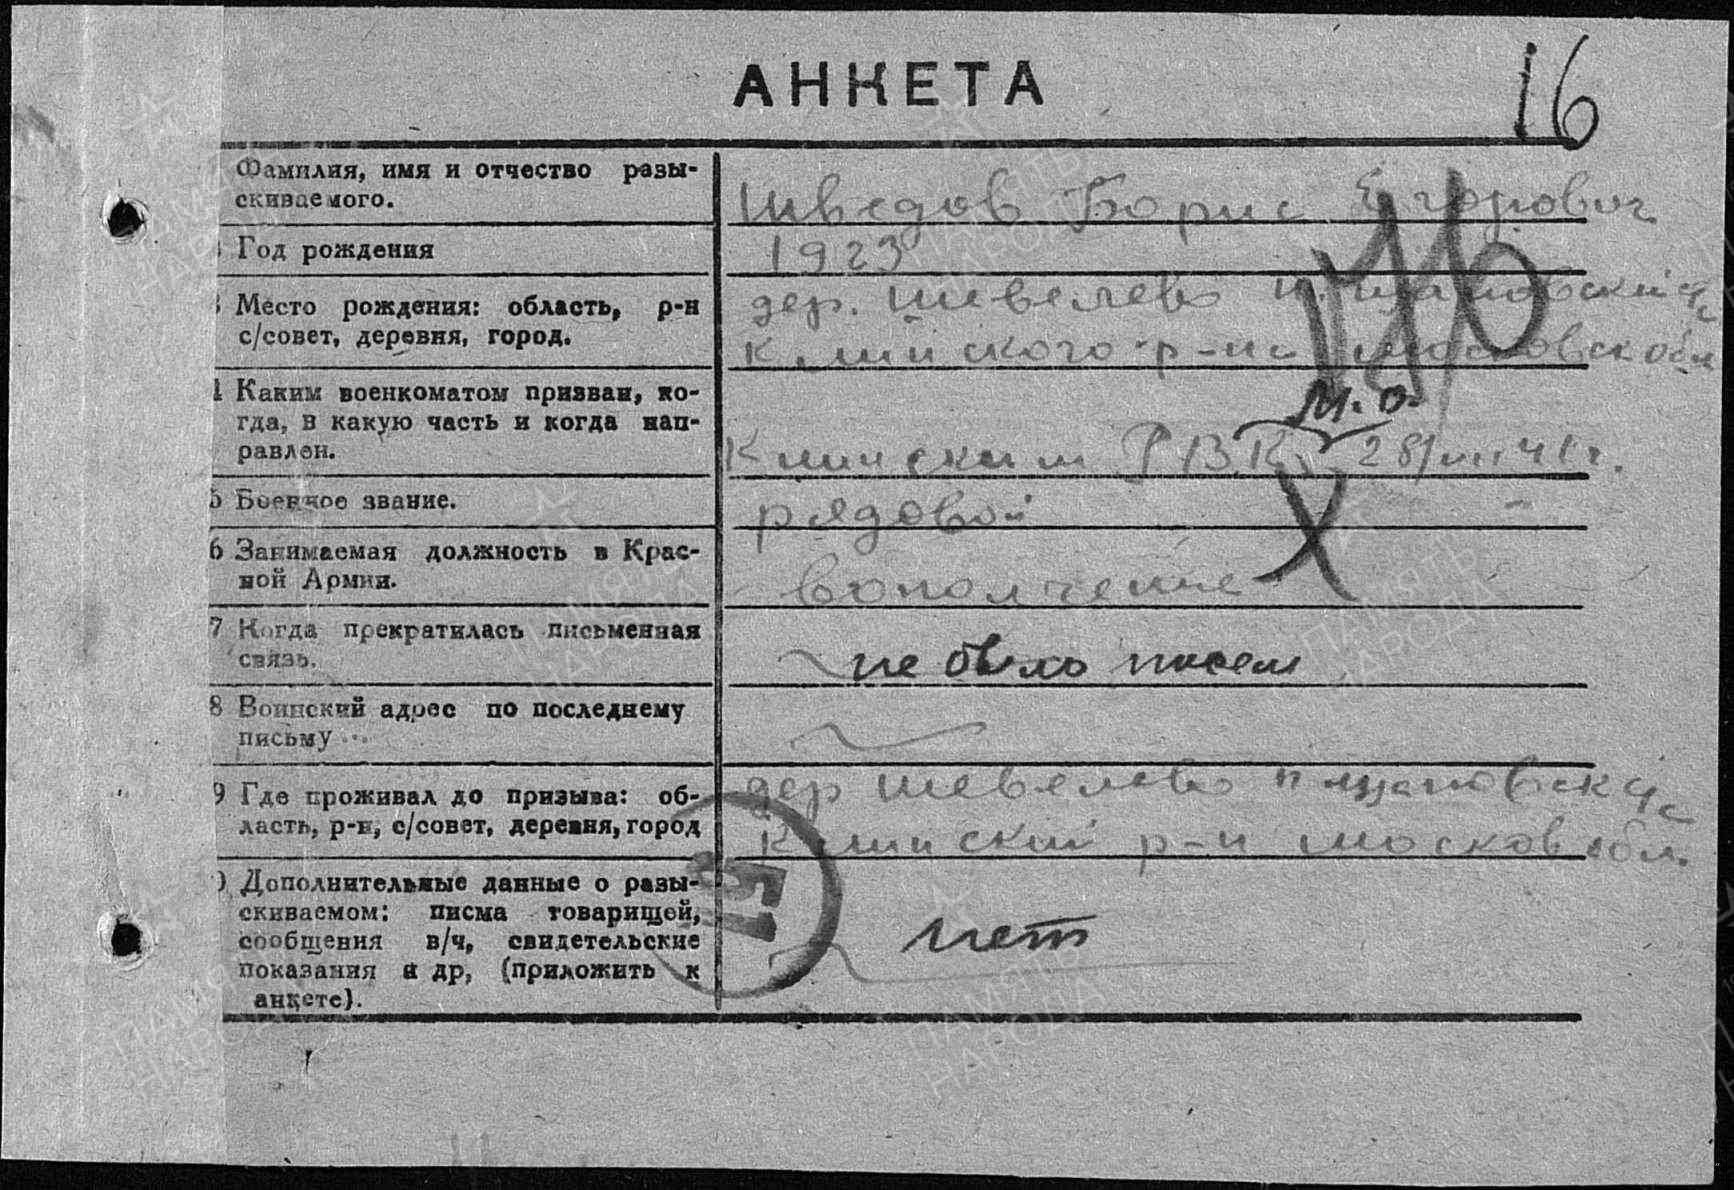 АНКЕТА
16
Фамилия, имя и отчество разы-
скиваемого.
Шведов Борис Егорович
Год рождения
1923
3 Место рождения: область, р-н
с/совет, деревня, город.
дер. Шевелево
Клинского р-на Московск обл
4 Каким военкоматом призван, ко-
гда, в какую часть и когда нап-
равлен.
М.О.
Клинским РВК 28/VIII 41 г.
5 Военное звание.
рядовой
6 Занимаемая должность в Крас-
ной Армии.
вополчение
7 Когда прекратилась письменная
связь.
не было писем
8 Воинский адрес по последнему
письму
9 Где проживал до призыва: об-
ласть, р-н, с/совет, деревня, город
дер Шевелево
Клинский р-н Москов обл.
Дополнительные данные о разы-
скиваемом: писма товарищей,
сообщения в/ч, свидетельские
показания и др, (приложить к
анкете).
нет
51
ПАМЯТЬ
НАРОДА